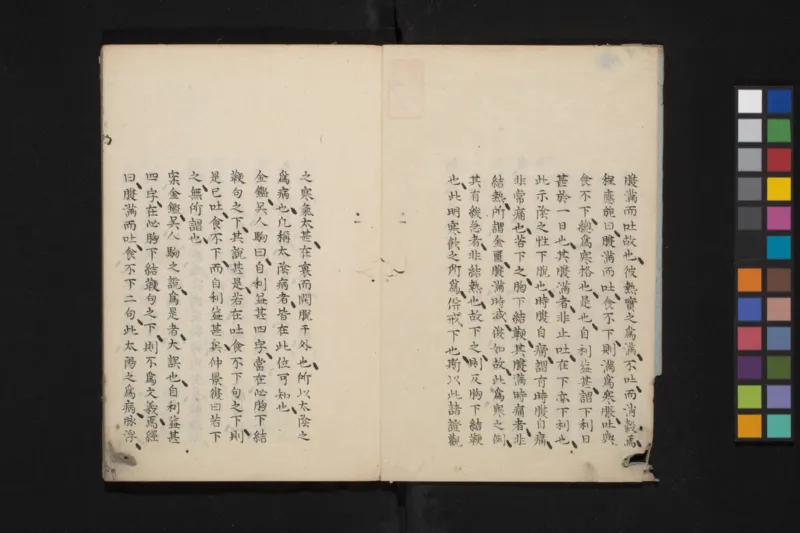 腹滿而吐故也彼熱實之爲滿不吐而消穀焉
程應旄曰腹滿而吐食不下則滿爲寒脹吐與
食不下總爲寒格也是也自利益甚謂下利日
甚於一日也其腹滿者非止吐在下亦下利也
此示陰之性下脫也時腹自痛謂有時腹自痛
非常痛也若下之胸下結鞕其腹滿時痛者非
結熱所謂金匱腹滿時減復如故此爲寒之例
其有緩急者非結熱也故下之則反胸下結鞕
也此明寒飲之所爲併戒下也斯以此諸證觀
之寒氣太甚在裏而開脫于外也所以太陰之
爲病也凡稱太陰病者皆在此位可知也
金鑑吳人駒曰自利益甚四字當在必胸下結
鞕句之下其說甚是若在吐食不下句之下則
是已吐食不下而自利益甚矣仲景復曰若下
之無所謂也
案金鑑吳人駒之說爲是者大誤也自利益甚
四字在必胸下結鞕句之下則不爲文義焉經
曰腹滿而吐食不下二句此太陽之爲病脉浮